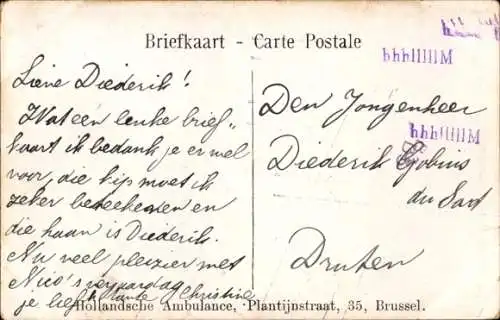 Briefkaart - Carte Postale
Lieve Diederik!
Wat een leuke brief-
kaart ik bedank je er wel
voor, die kip moet ik
zeker beteekenen en
die haan is Diederik.
Nu veel pleizier met
Nico's verjaardag
je liefh. Tante Christine
Den Jongenheer
Diederik Gobius
du Sart
Druten
Hollandsche Ambulance, Plantijnstraat, 35, Brussel.